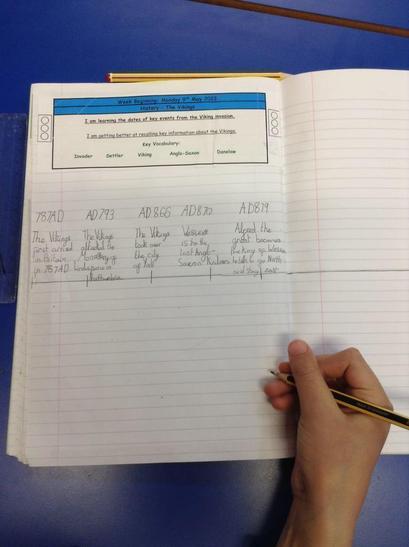 Week Beginning: Monday 9th May 2022
History - The Vikings
I am learning the dates of key events from the Viking invasion.
I am getting better at recalling key information about the Vikings.
Key Vocabulary:
Invader Settler Viking Anglo-Saxon Danelaw
787AD AD793 AD866 AD870 AD879
The Vikings
first arrived
in Britain
in 787AD
The Vikings
attacked the
monastery
Lindisfarne in
Northumbria
The Vikings
took over
the city
of York
Wessex
is the
last Anglo-
Saxon
Alfred the
great becomes
the king